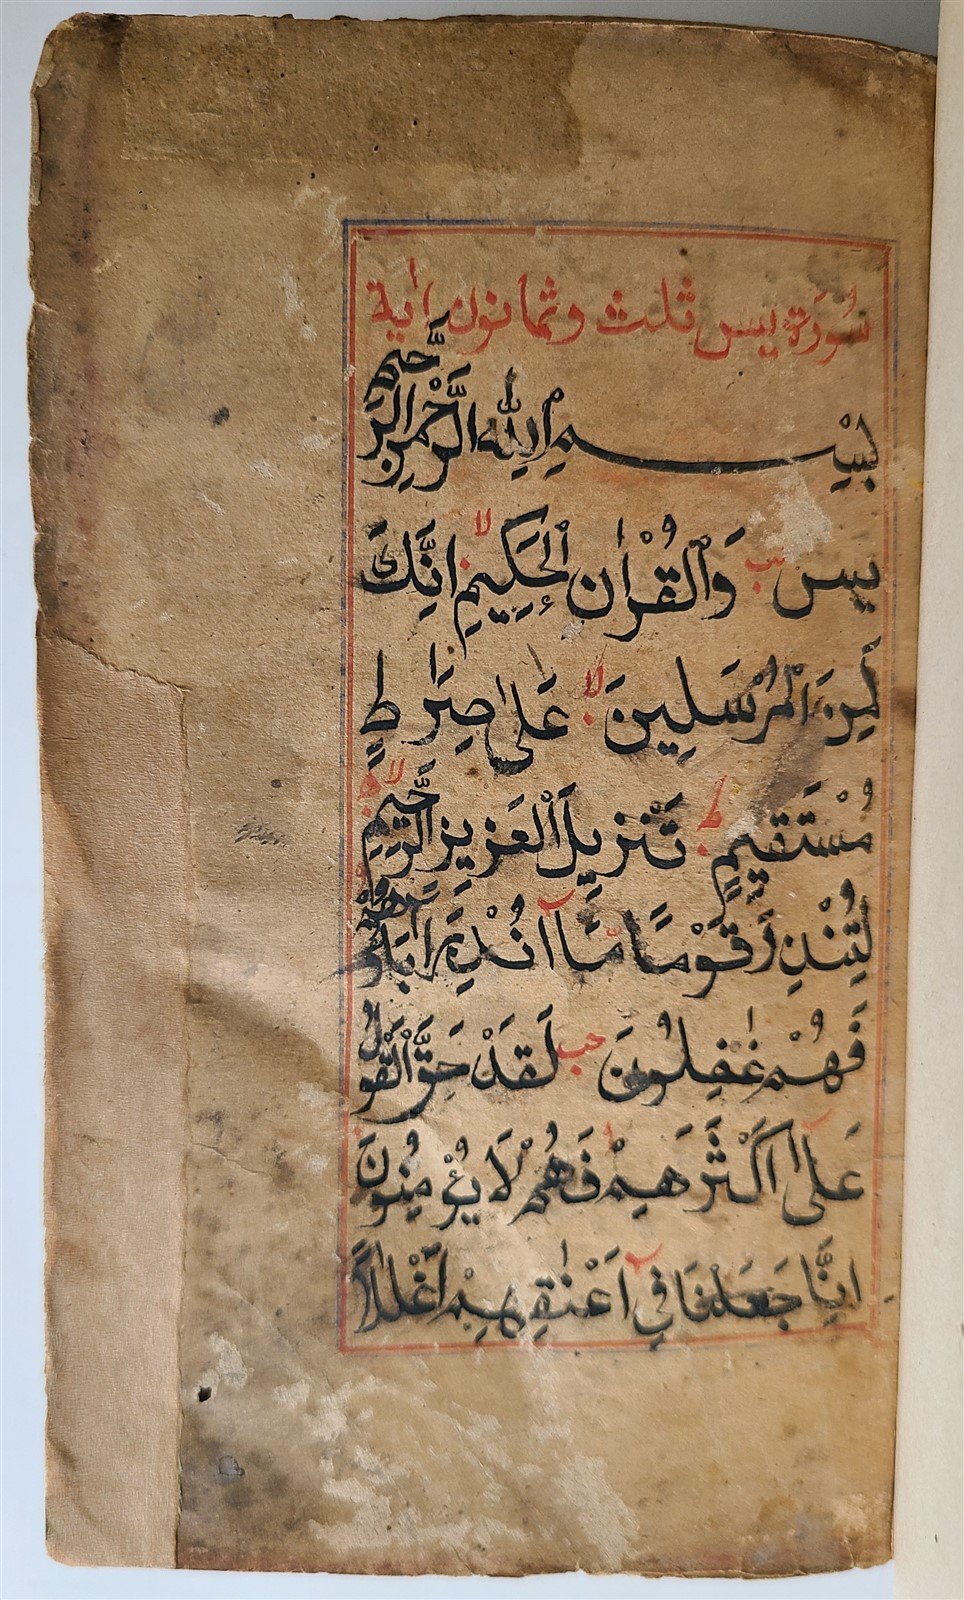 سُورَة يس ثلث وثمانون اٰية
بِسْمِ اللهِ الرَّحْمٰنِ الرَّحِيمِ
يس وَالْقُرْاٰنِ الْحَكِيمِ لا اِنَّكَ
لَمِنَ الْمُرْسَلِينَ لا عَلٰى صِرَاطٍ
مُسْتَقِيمٍ ط تَنْزِيلَ الْعَزِيزِ الرَّحِيمِ لا
لِتُنْذِرَ قَوْمًا مَّا اُنْذِرَ اٰبَاؤُهُمْ
فَهُمْ غٰفِلُونَ لَقَدْ حَقَّ الْقَوْلُ
عَلٰى اَكْثَرِهِمْ فَهُمْ لَا يُؤْمِنُونَ
اِنَّا جَعَلْنَا فِي اَعْنٰقِهِمْ اَغْلٰلًا